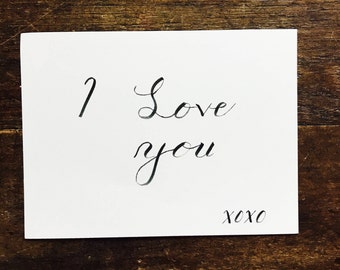 I Love
you
xoxo